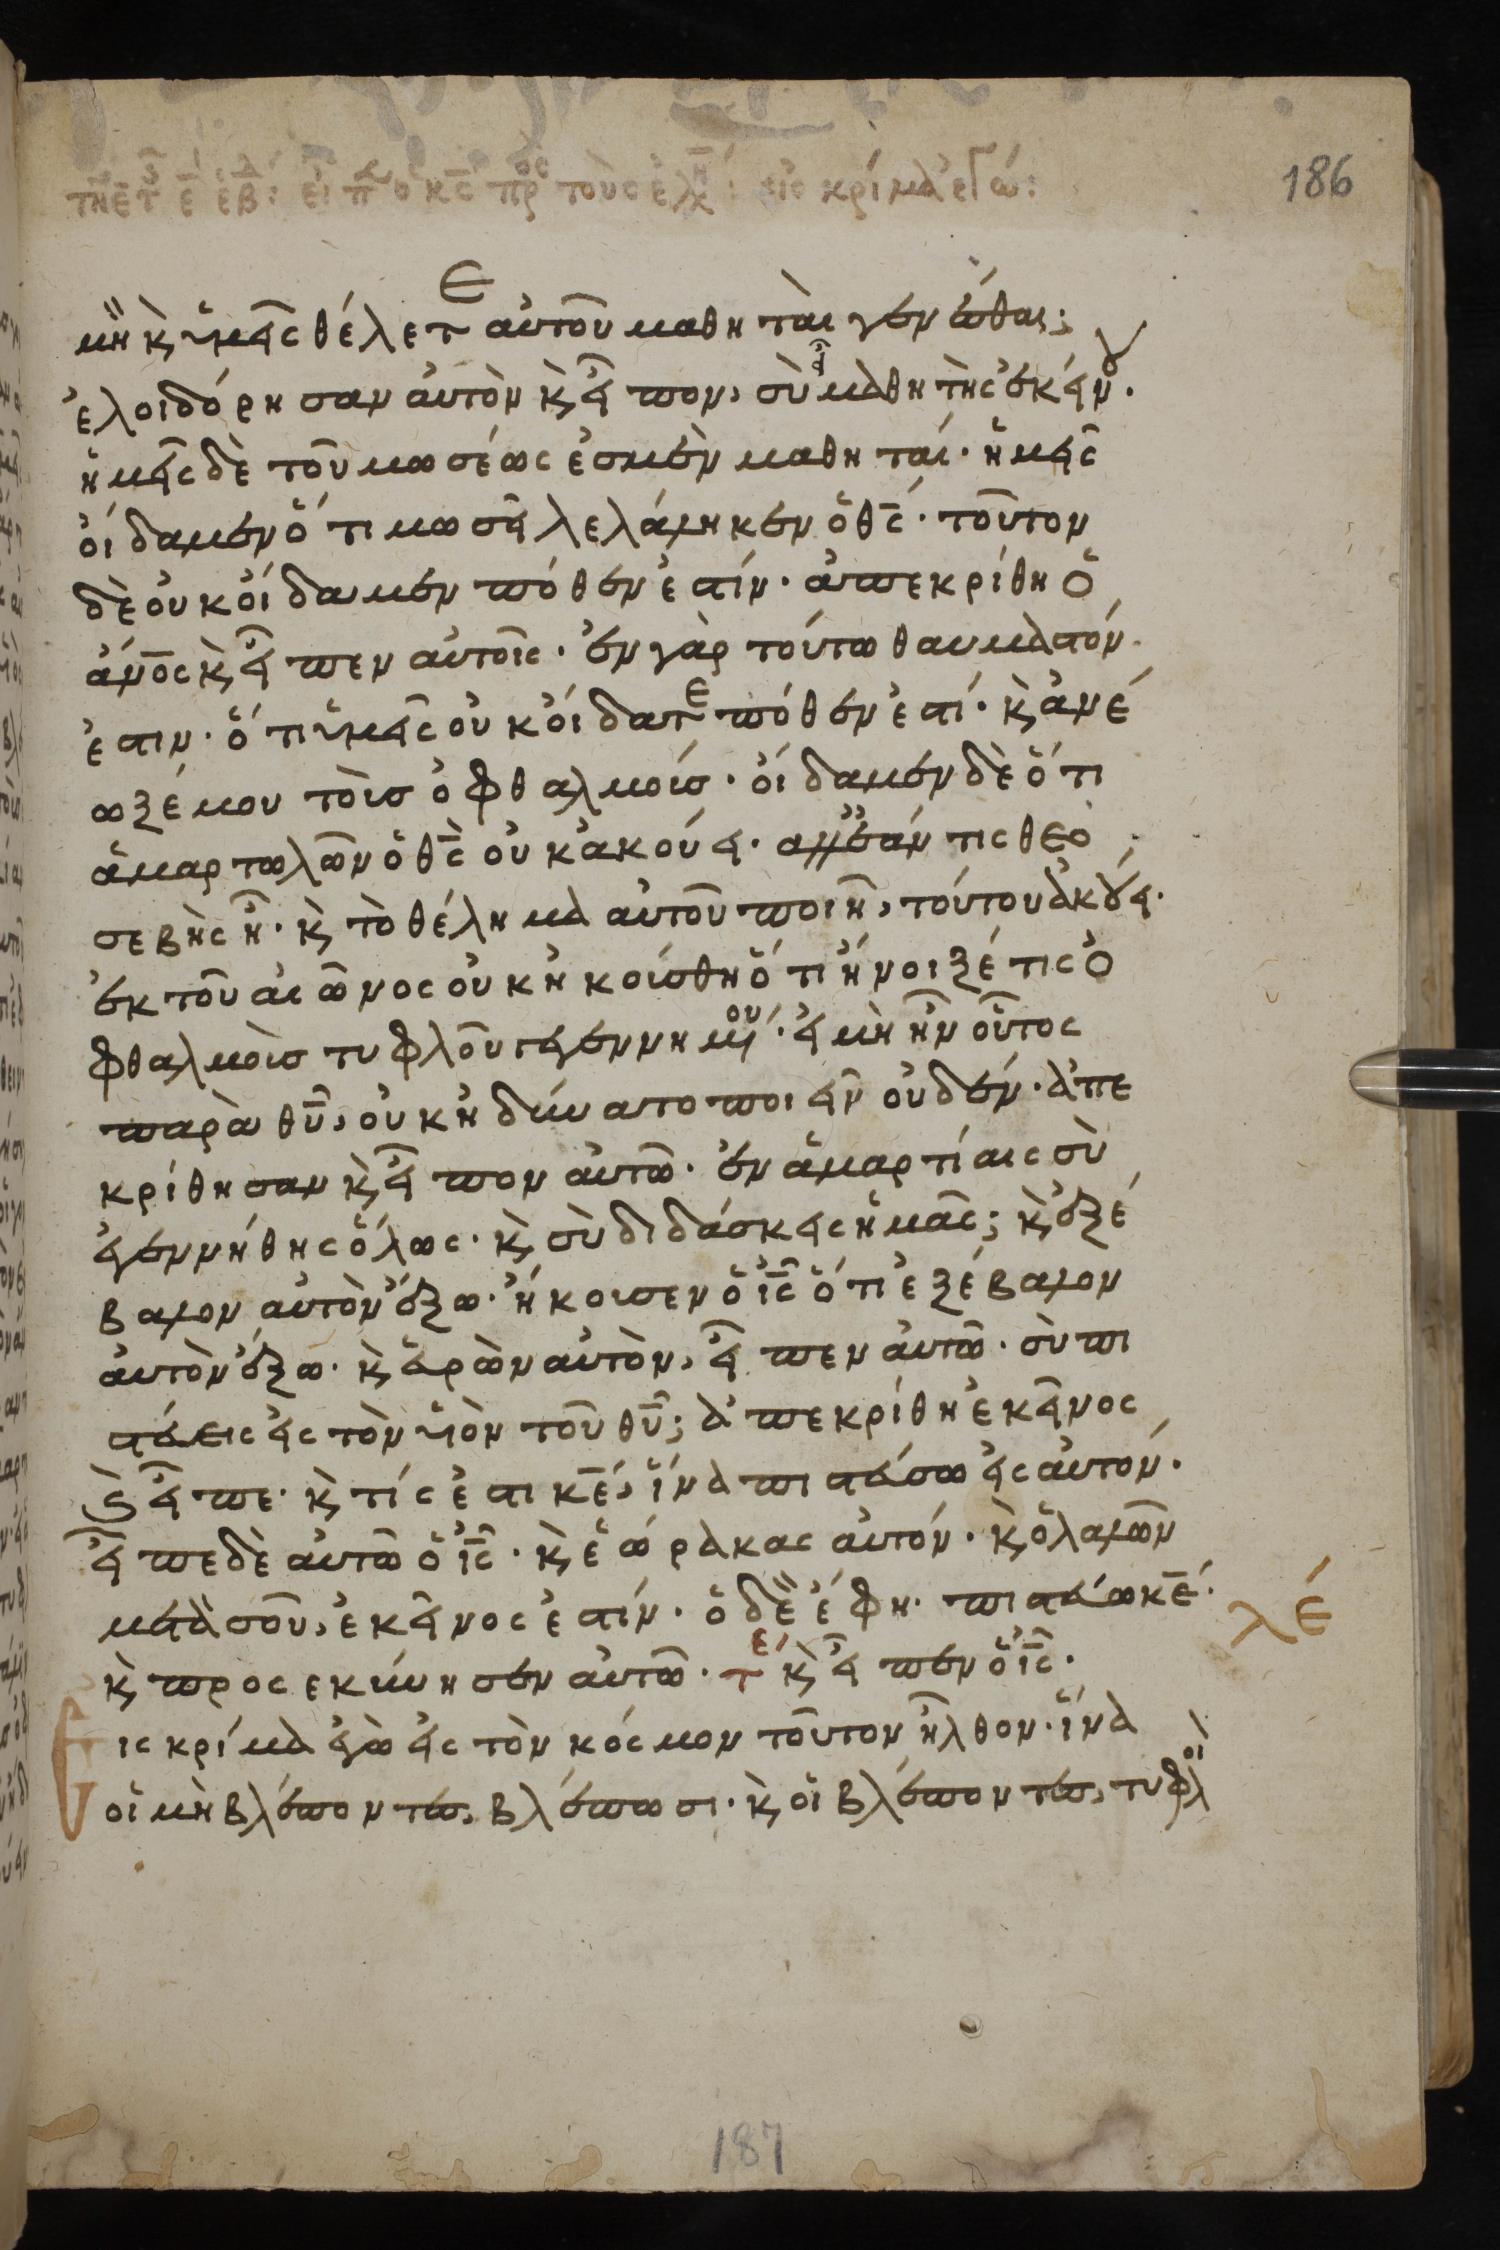 τῆ ε̄ τ̑ ε̄ ἑβ: εἶπ ὁ κ̄ς πρὸς τοὺς εἰς κρίμα ἐγώ:
186
μὴ κ̀ ὑμεῖς θέλετε αὐτοῦ μαθηταὶ γενέσθαι;
ἐλοιδόρησαν αὐτὸν κ̀ εἶπον, σὺ εἶ μαθητὴς ἐκείνου.
ἡμεῖς δὲ τοῦ μωσέως ἐσμὲν μαθηταί· ἡμεῖς
οἴδαμεν ὅτι μωσεῖ λελάληκεν ὁ θ̄ς· τοῦτον
δὲ οὐκ οἴδαμεν πόθεν ἐστίν· ἀπεκρίθη ὁ
ἄν̄ος κ̀ εἶπεν αὐτοῖς· ἐν γὰρ τούτω θαυμαστόν
ἐστιν· ὅτι ὑμεῖς οὐκ οἴδατε πόθεν ἐστί· κ̀ ἀνέ
ωξέ μου τοὺς ὀφθαλμούς· οἴδαμεν δὲ ὅτι
ἁμαρτωλῶν ὁ θ̄ς οὐκ ἀκούει· ἀλλ' ἐάν τις θεο
σεβὴς ῆ· κ̀ τὸ θέλημα αὐτοῦ ποιῆ, τούτου ἀκούει·
ἐκ τοῦ αἰῶνος οὐκ ἠκούσθη ὅτι ἤνοιξέ τις ὀ
φθαλμοὺς τυφλοῦ γεγεννημένου· εἰ μὴ ἦν οὗτος
παρὰ θ̄ῦ, οὐκ ἠδύνατο ποιεῖν οὐδέν· ἀπε
κρίθησαν κ̀ εἶπον αὐτῶ· ἐν ἁμαρτίαις σὺ
ἐγεννήθης ὅλως· κ̀ σὺ διδάσκεις ἡμᾶς; κ̀ ἐξέ
βαλον αὐτὸν ἔξω· ἤκουσεν ὁ ῑς ὅτι ἐξέβαλον
αὐτὸν ἔξω· κ̀ εὑρὼν αὐτὸν, εἶπεν αὐτῶ· σὺ πι
στεύεις εἰς τὸν υἱὸν τοῦ θ̄ῦ; ἀπεκρίθη ἐκεῖνος
κ̀ εἶπε· κ̀ τίς ἐστι κ̄ε, ἵνα πιστεύσω εἰς αὐτόν·
εἶπε δὲ αὐτῶ ὁ ῑς· κ̀ ἑώρακας αὐτόν· κ̀ ὁ λαλῶν
μετὰ σοῦ, ἐκεῖνος ἐστίν· ὁ δὲ ἔφη· πιστεύω κ̄ε·
κ̀ προσεκύνησεν αὐτῶ· τε κ̀ εἶπεν ὁ ῑς·
λέ
Εις κρίμα ἐγὼ εἰς τὸν κόσμον τοῦτον ἦλθον· ἵνα
οἱ μὴ βλέποντες, βλέπωσι· κ̀ οἱ βλέποντες, τυφλοὶ
187